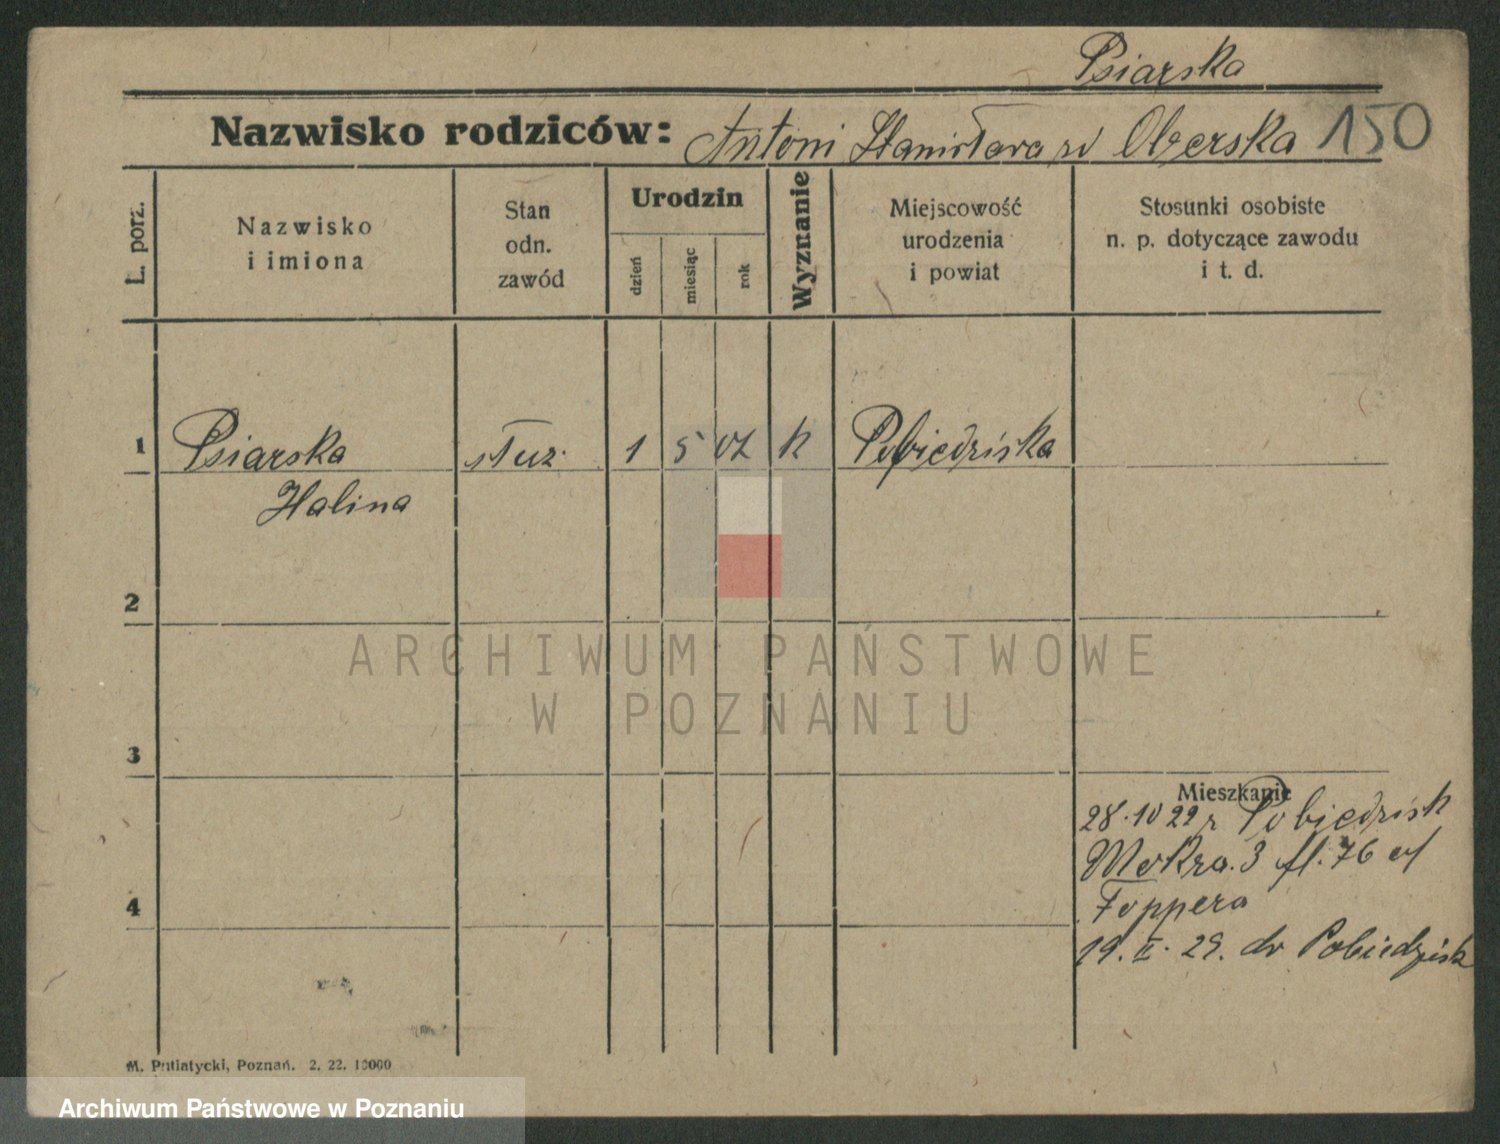 Psiarska
Nazwisko rodziców: Antoni Stanisława zd Olszerska 150
L. porz.
Nazwisko
i imiona
Stan
odn.
zawód
Urodzin
dzień
miesiąc
rok
Wyznanie
Miejscowość
urodzenia
i powiat
Stosunki osobiste
n. p. dotyczące zawodu
i t. d.
1 Psiarska służ. 1 5 07 k Pobiedziska
Halina
2
3
Mieszkanie
28.10 22 z Pobiedzisk
Mokra. 3 fl. 76
4
Toppera
19. II. 29. do Pobiedzisk
M. Putiatycki, Poznań. 2. 22. 10000
ARCHIWUM PAŃSTWOWE
W POZNANIU
Archiwum Państwowe w Poznaniu